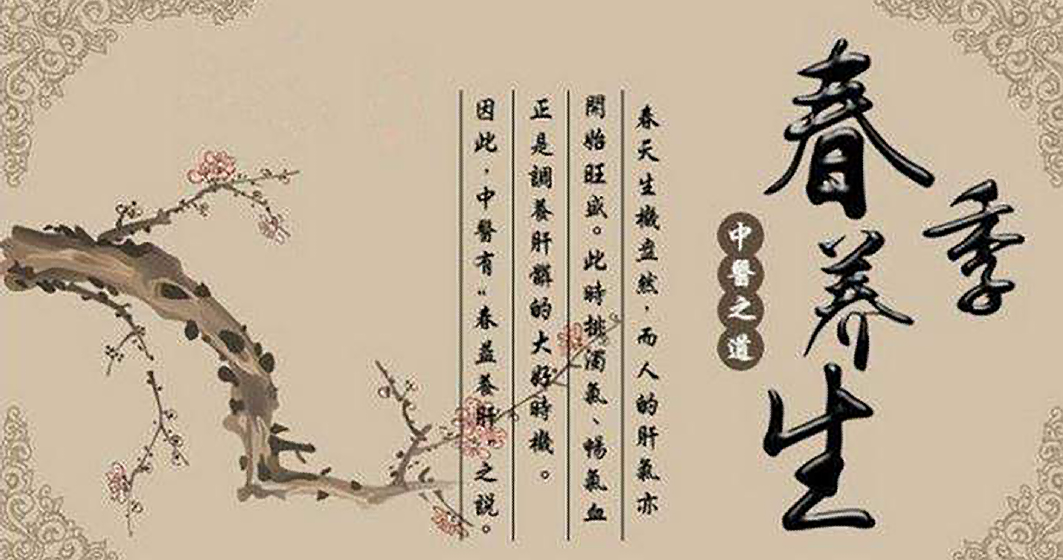 春季养生
中醫之道
春天生機盎然，而人的肝氣亦
開始旺盛。此時排濁氣、暢氣血
正是調養肝髒的大好時機。
因此，中醫有“春益養肝”之說。